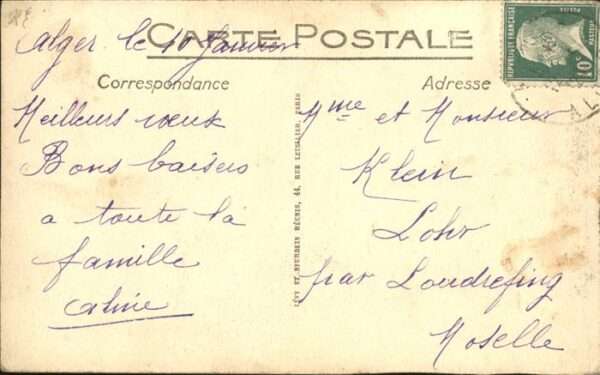 CARTE POSTALE
Alger le 10 Janvier
Correspondance
Adresse
Meilleurs vœux
Bons baisers
a toute la
famille
Aline
LÉVY ET NEURDEIN RÉUNIS, 44, RUE LETELLIER, PARIS
Mme et Monsieur
Klein
Lohr
par Loudrefing
Moselle
RÉPUBLIQUE FRANÇAISE
POSTES
10c